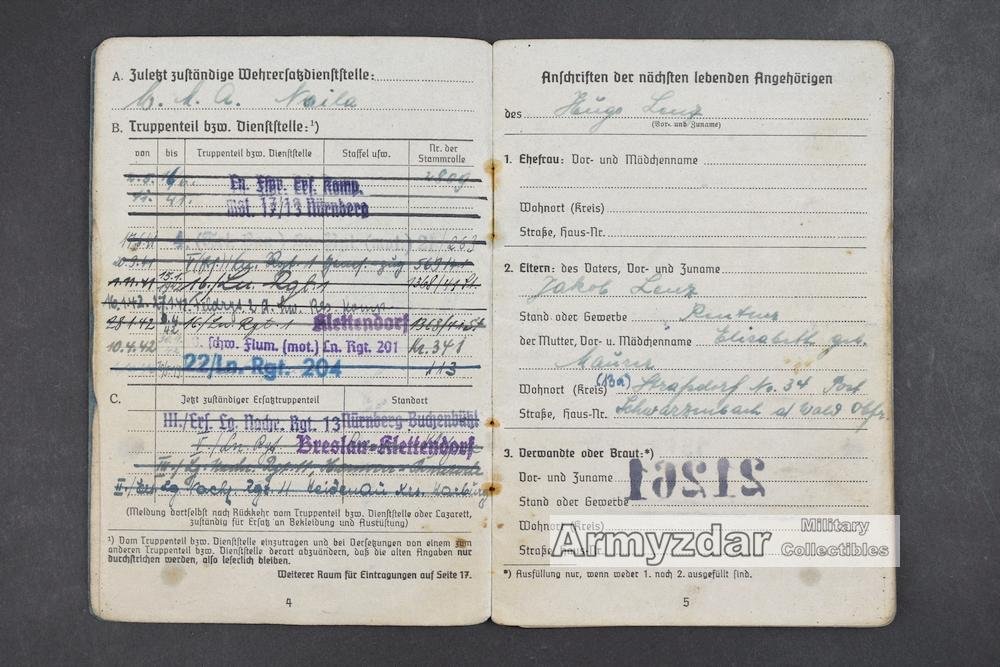 A. Zuletzt zuständige Wehrersatzdienststelle:
W. M. A. Naila
B. Truppenteil bzw. Dienststelle:¹)
von bis Truppenteil bzw. Dienststelle Staffel usw. Nr. der Stammrolle
2809
Ln. Flgr. Ers. Komp.
Mot. 17/13 Nürnberg
263
20.9.41 Ln. Rgt. 1 569/41
1.11.41 16./Ln. Rgt. 1 1368/41
28.1.42 16./Ln. Rgt. 1 Klettendorf 1368/41
10.4.42 schw. Flum. (mot.) Ln. Rgt. 201 Nr. 341
22/Ln.-Rgt. 204 113
C. Jetzt zuständiger Ersatztruppenteil Standort
III./Ers. Lg. Nachr. Rgt. 13 Nürnberg Buchenbühl
Breslau-Klettendorf
II./Ers. Lg. Nachr. Rgt. 11
(Meldung dortselbst nach Rückkehr vom Truppenteil bzw. Dienststelle oder Lazarett,
zuständig für Ersatz an Bekleidung und Ausrüstung)
¹) Vom Truppenteil bzw. Dienststelle einzutragen und bei Versetzungen von einem zum
anderen Truppenteil bzw. Dienststelle derart abzuändern, daß die alten Angaben nur
durchstrichen werden, also leserlich bleiben.
Weiterer Raum für Eintragungen auf Seite 17.
4
Anschriften der nächsten lebenden Angehörigen
des Hugo Lenz
(Vor- und Zuname)
1. Ehefrau: Vor- und Mädchenname
Wohnort (Kreis)
Straße, Haus-Nr.
2. Eltern: des Vaters, Vor- und Zuname
Jakob Lenz
Stand oder Gewerbe Rentner
der Mutter, Vor- u. Mädchenname Elisabeth geb.
Maurer
Wohnort (Kreis) Straßdorf No. 34 Post
Straße, Haus-Nr. Schwarzenbach a/Wald Obfr.
3. Verwandte oder Braut:*)
Vor- und Zuname
21261
Stand oder Gewerbe
Wohnort (Kreis)
Straße, Haus-Nr.
*) Ausfüllung nur, wenn weder 1. noch 2. ausgefüllt sind.
5
Armyzdar Military Collectibles